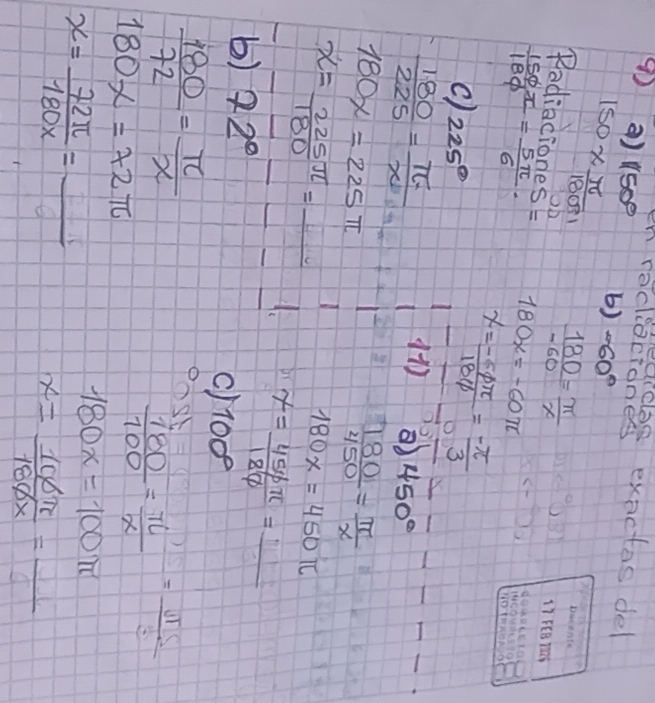 9)
en radiaciones exactas del
a) 150°
150 x π/180
Radiaciones =
150π/180 = 5π/6.
b) -60°
180/-60 = π/x
180x = -60π
x = -60π/180 = -π/3
c) 225°
180/225 = π/x
180x = 225π
x = 225π/180 = __
11) a) 450°
180/450 = π/x
180x = 450π
x = 450π/180 = __
b) 72°
180/72 = π/x
180x = 72π
x = 72π/180x = __
c) 100°
180/100 = π/x
180x = 100π
x = 100π/180x = __
17 FEB